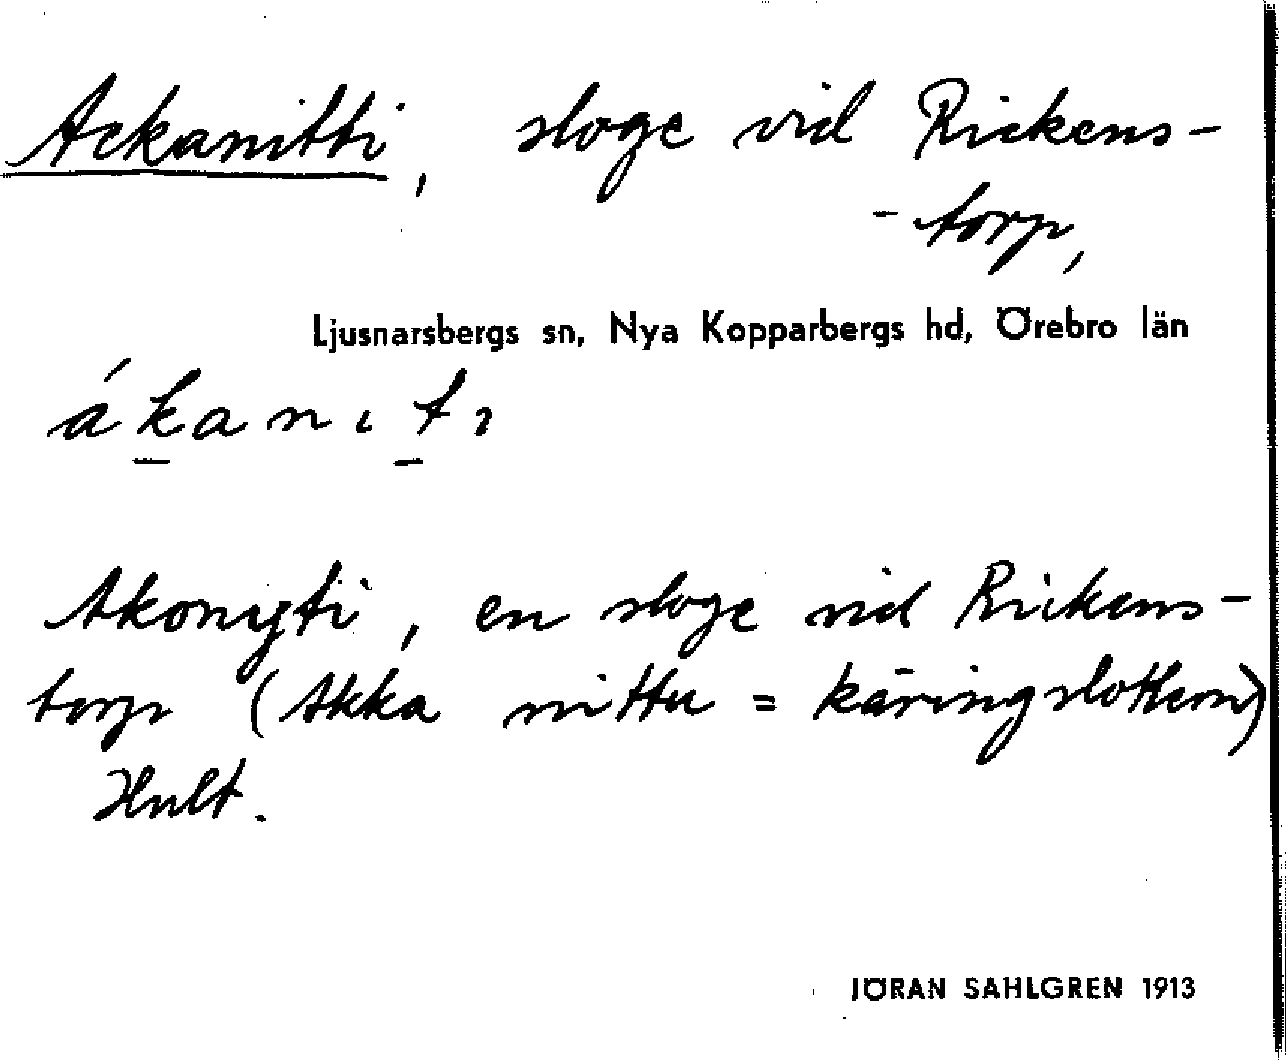 Ackanitti, sloge vid Rickens-
-torp,
Ljusnarsbergs sn, Nya Kopparbergs hd, Örebro län
ákanιtı
Akonyti, en sloge vid Rickens-
torp (Akka nittu = käringslottern)
Hult.
JÖRAN SAHLGREN 1913